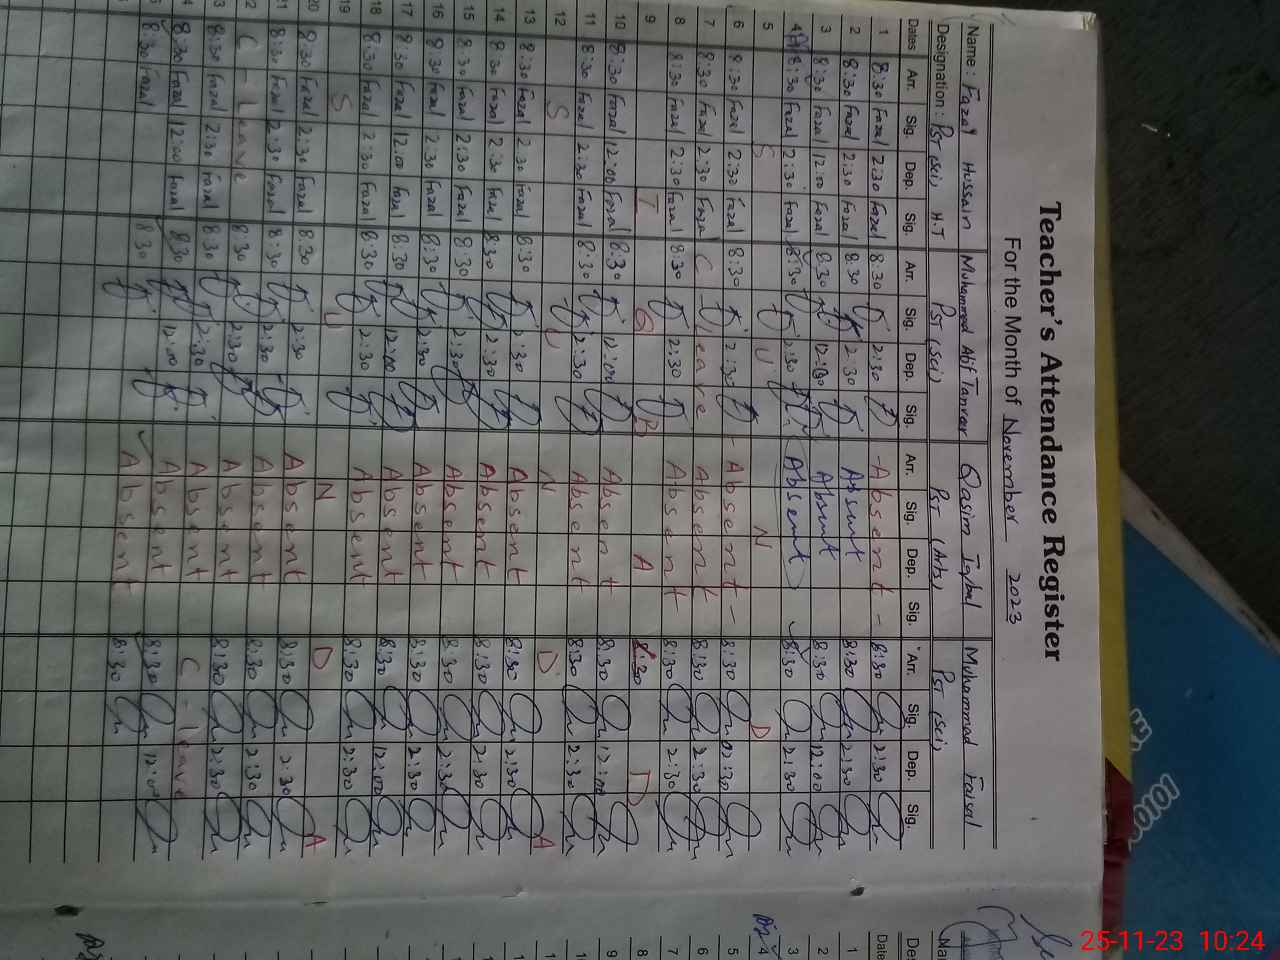 Teacher's Attendance Register
For the Month of November 2023
Name: Fazal Hussain Muhammad Atif Tanveer Qasim Iqbal Muhammad Faisal
Designation: PST (Sci) H.T PST (Sci) PST (Arts) PST (Sci)
Dates Arr. Sig. Dep. Sig. Arr. Sig. Dep. Sig. Arr. Sig. Dep. Sig. Arr. Sig. Dep. Sig.
1 8:30 Fazal 2:30 Fazal 8:30 2:30 -Absent- 8:30 2:30
2 8:30 Fazal 2:30 Fazal 8:30 2:30 Absent 8:30 2:30
3 8:30 Fazal 12:00 Fazal 8:30 12:00 Absent 8:30 12:00
4 8:30 Fazal 2:30 Fazal 8:30 2:30 Absent 8:30 2:30
5 S U N D
6 8:30 Fazal 2:30 Fazal 8:30 2:30 -Absent- 8:30 02:30
7 8:30 Fazal 2:30 Fazal C leave Absent 8:30 2:30
8 8:30 Fazal 2:30 Fazal 8:30 2:30 Absent 8:30 2:30
9 I Q B A 8:30 D
10 8:30 Fazal 12:00 Fazal 8:30 12:00 Absent 8:30 12:00
11 8:30 Fazal 2:30 Fazal 8:30 2:30 Absent 8:30 2:30
12 S U N D A
13 8:30 Fazal 2:30 Fazal 8:30 2:30 Absent 8:30 2:30
14 8:30 Fazal 2:30 Fazal 8:30 2:30 Absent 8:30 2:30
15 8:30 Fazal 2:30 Fazal 8:30 2:30 Absent 8:30 2:30
16 8:30 Fazal 2:30 Fazal 8:30 2:30 Absent 8:30 2:30
17 8:30 Fazal 12:00 Fazal 8:30 12:00 Absent 8:30 12:00
18 8:30 Fazal 2:30 Fazal 8:30 2:30 Absent 8:30 2:30
19 S U N D A
20 8:30 Fazal 2:30 Fazal 8:30 2:30 Absent 8:30 2:30
21 8:30 Fazal 2:30 Fazal 8:30 2:30 Absent 8:30 2:30
2 C - leave 8:30 2:30 Absent 8:30 2:30
3 8:30 Fazal 2:30 Fazal 8:30 2:30 Absent C - leave
4 8:30 Fazal 12:00 Fazal 8:30 12:00 Absent 8:30 12:00
8:30 Fazal 8:30 Absent 8:30
Date
1
2
3
4
5
6
7
8
9
25-11-23 10:24